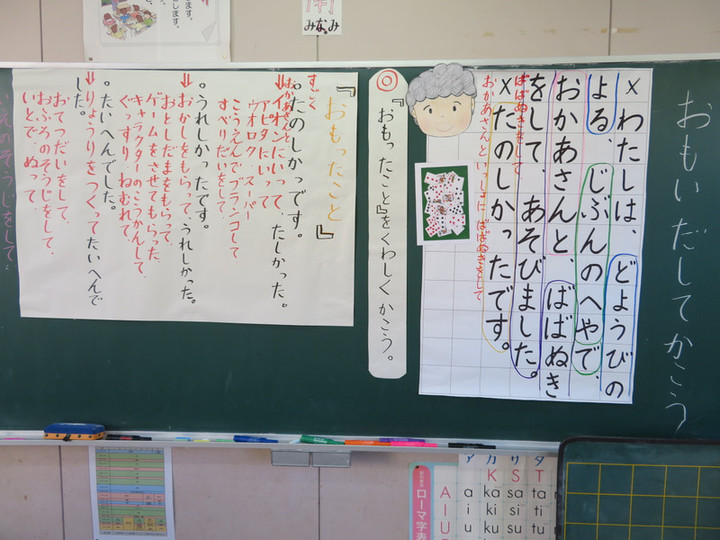 おもいだしてかこう
×わたしは、どようびの
よる、じぶんのへやで、
おかあさんと、ばばぬき
をして、あそびました。
ばばぬきをして
×たのしかったです。
おかあさんといっしょにばばぬきをして
◎『おもったこと』をくわしくかこう。
『おもったこと』
すごく
。たのしかったです。
おかあさんと
↓イオンにいって、たしかった。
アピタにいって
ウオロク、スーパー
こうえんでブランコして
すべりだいをして、
。うれしかったです。
↓おかしをもらって、うれしかった。
おとしだまをもらって、
ゲームをさせてもらった
キャラクターのこうかんして、
ぐっすりねむれて、
。たいへんでした。
↓りょうりをつくってたいへんで
した。
おてつだいをして、
おふろのそうじをして、
いとで、ぬって、
そうじをして、
みなみ
ローマ字表
ア カ サ タ
K S T
A a ka sa ta
I i ki si ti
U u ku su tu